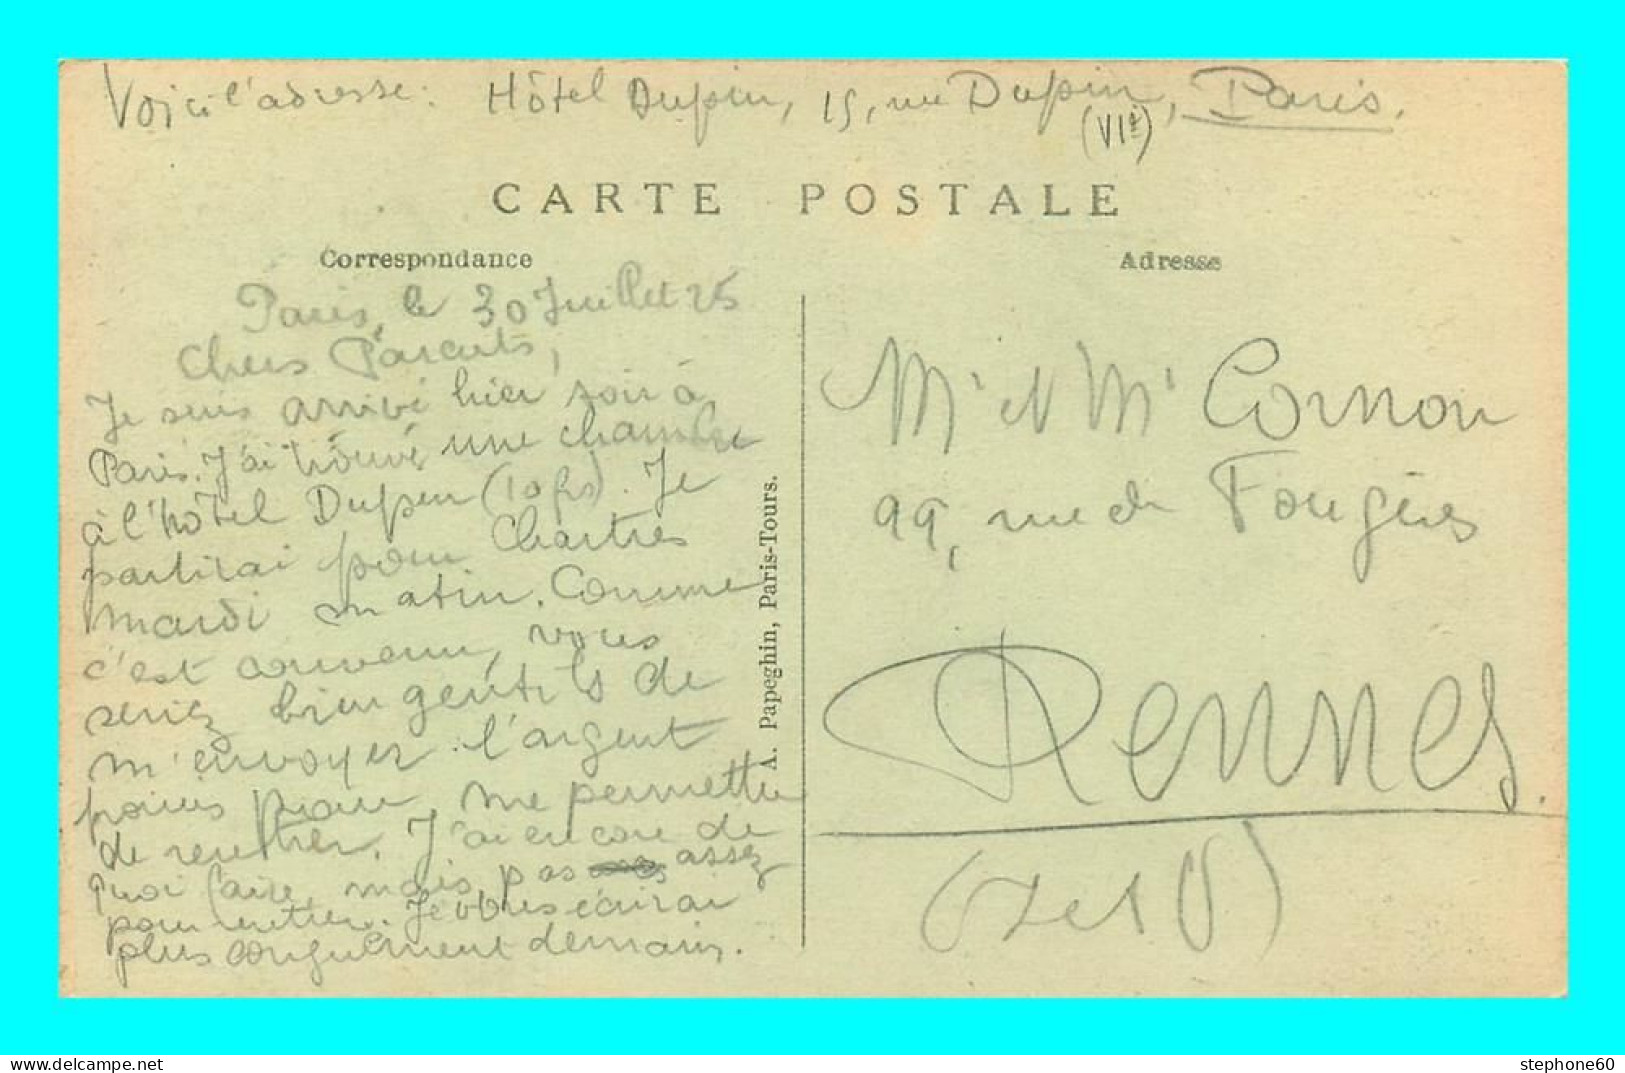 Voici l'adresse : Hôtel Dupin, 15, rue Dupin, Paris.
(VIe)
CARTE POSTALE
Correspondance
Adresse
Paris, le 30 Juillet 25
Chers Parents,
Je suis arrivé hier soir à
Paris. J'ai trouvé une chambre
à l'hôtel Dupin (10 frs). Je
partirai pour Chartres
mardi matin. Comme
c'est convenu, vous
seriez bien gentils de
m'envoyer l'argent
pour me permettre
de rentrer. J'ai encore de
quoi faire, mais pas assez
pour rentrer. Je vous écrirai
plus longuement demain.
A. Papeghin, Paris-Tours.
Mr et Me Cornon
99, rue de Fougères
Rennes.
(I et V)
stephone60
www.delcampe.net